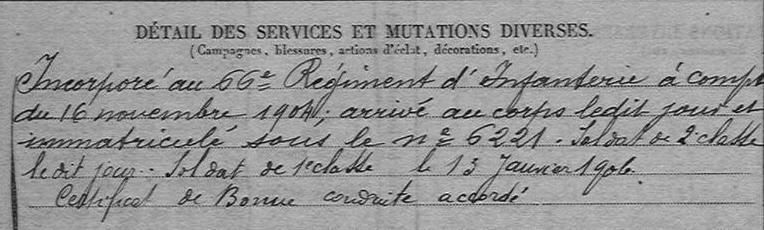 DÉTAIL DES SERVICES ET MUTATIONS DIVERSES.
(Campagnes, blessures, actions d'éclat, décorations, etc.)
Incorporé au 66e Régiment d'Infanterie à compt
du 16 novembre 1904, arrivé au corps ledit jour et
immatriculé sous le no 6221. Soldat de 2 classe
le dit jour. Soldat de 1e classe le 13 Janvier 1906.
Certificat de Bonne conduite accordé